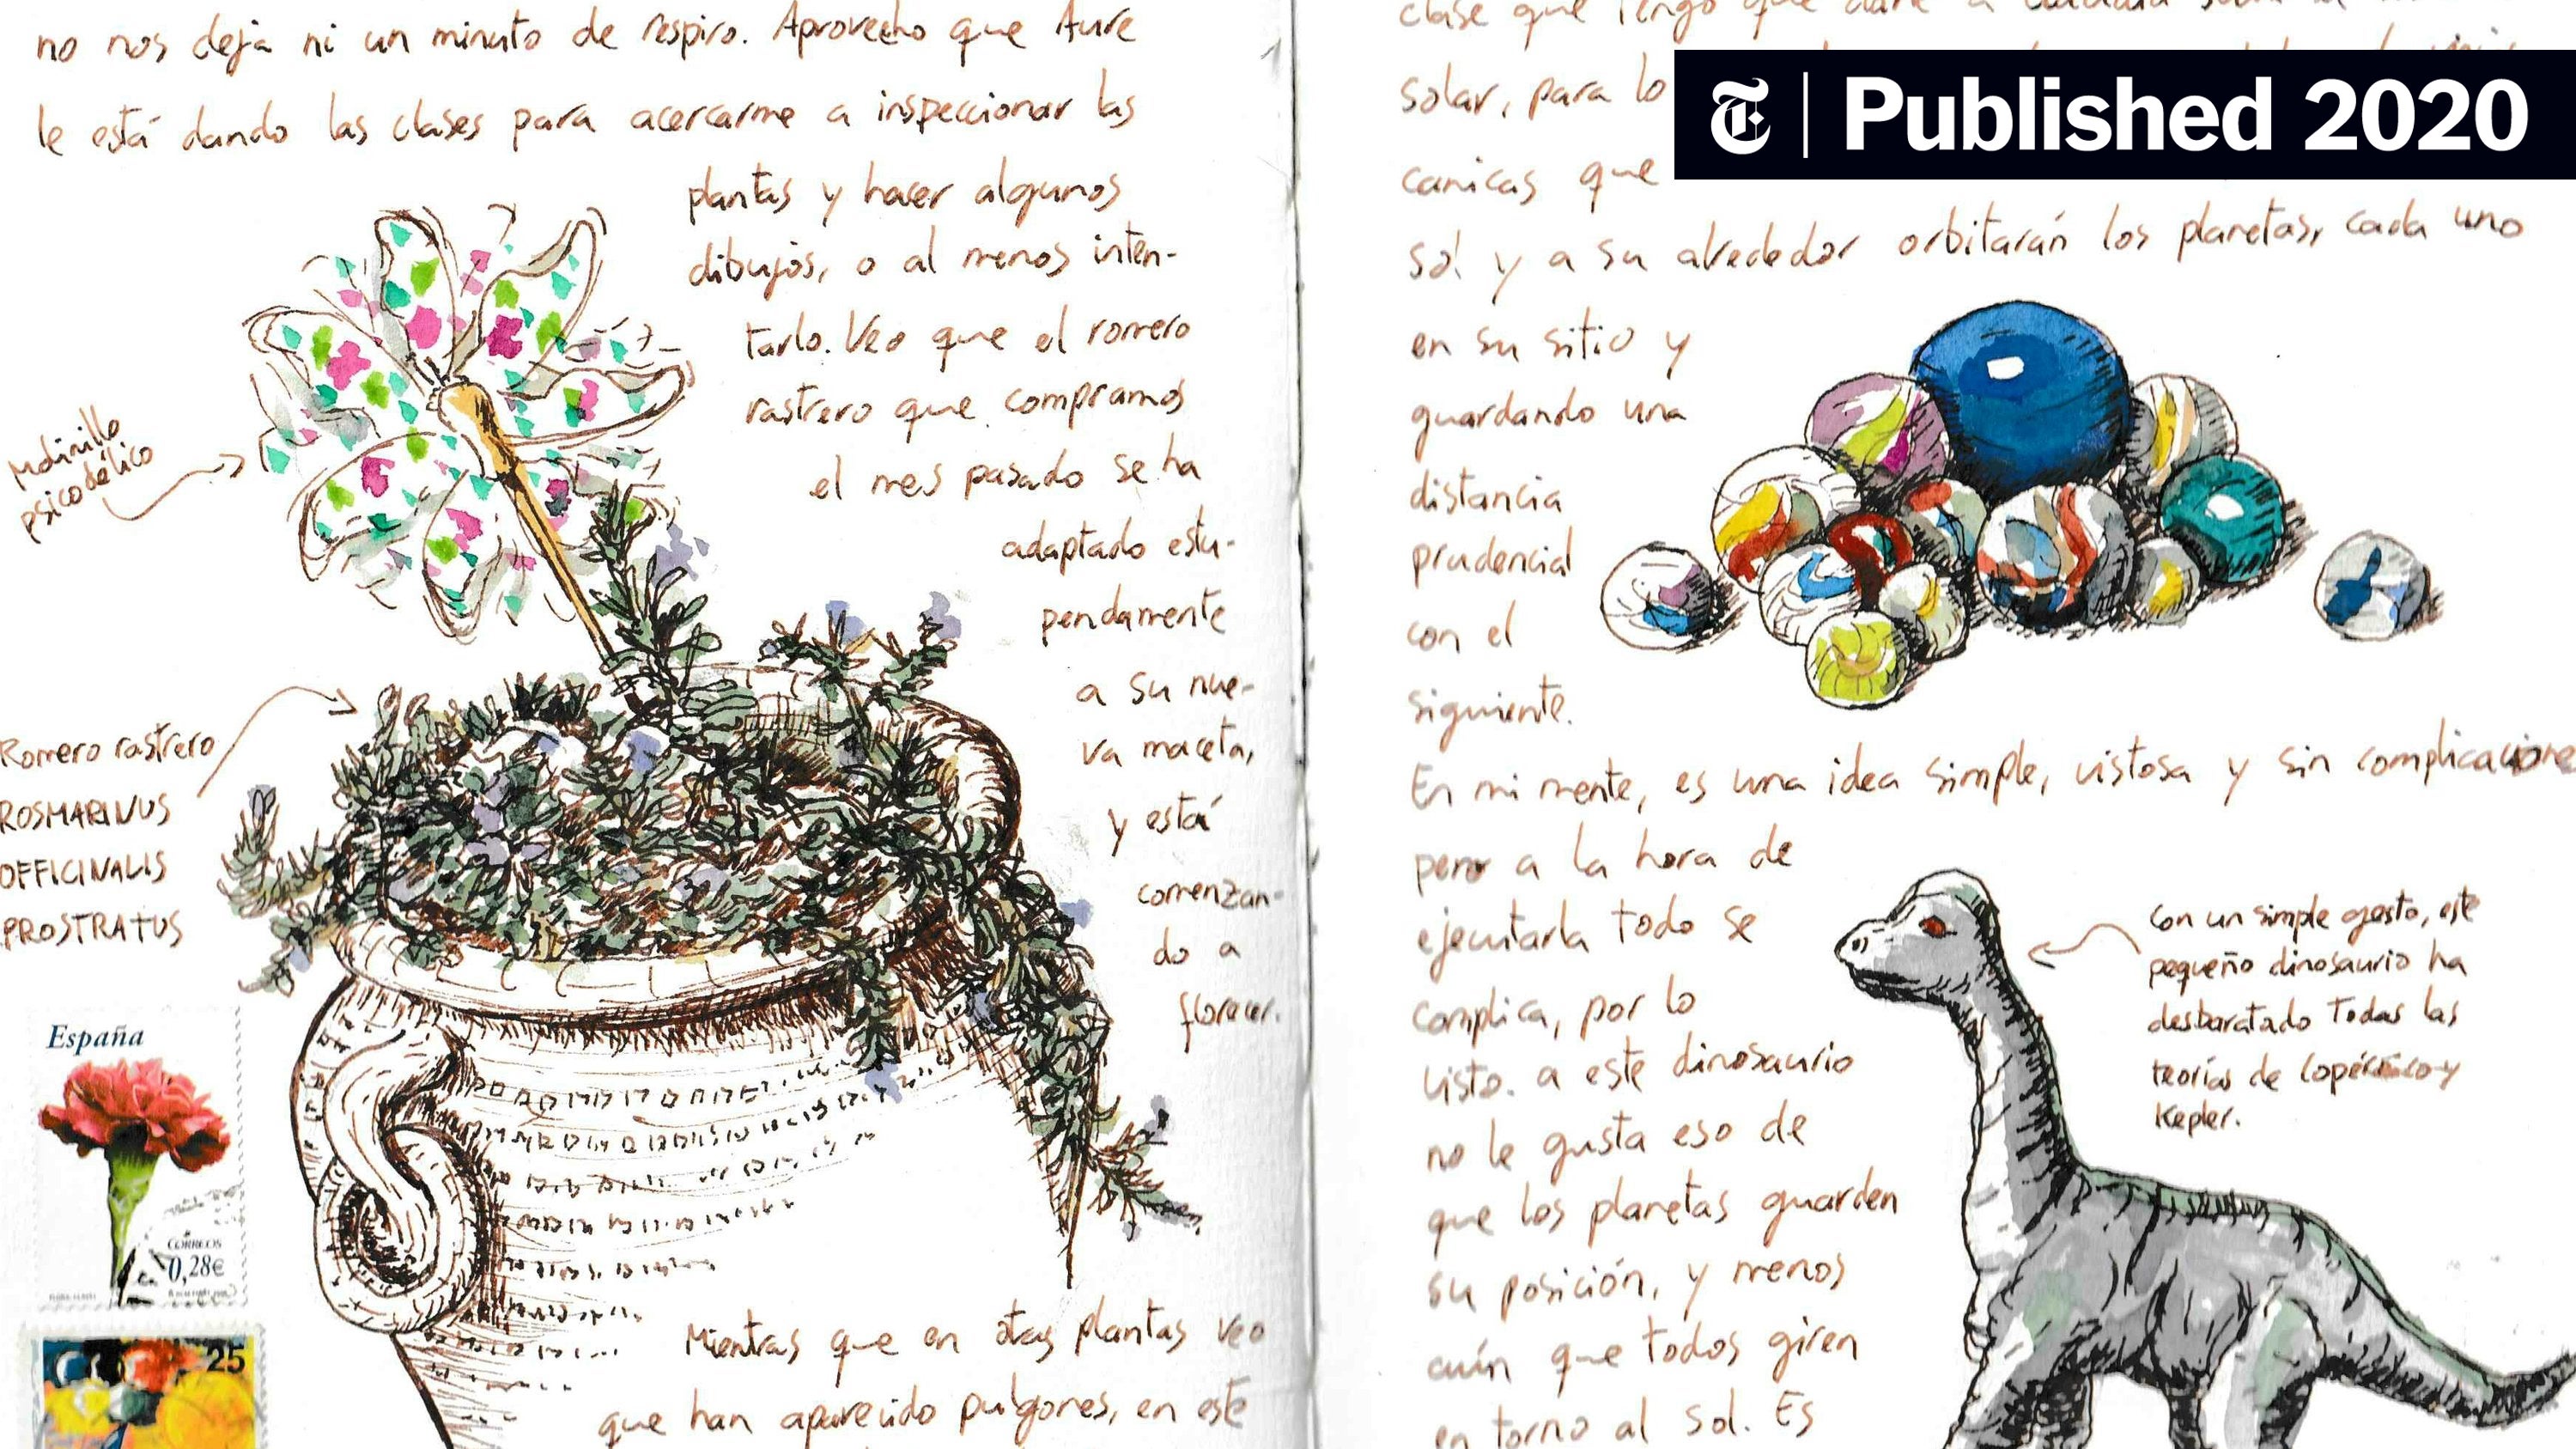 no nos deja ni un minuto de respiro. Aprovecho que Aure
le está dando las clases para acercarme a inspeccionar las
plantas y hacer algunos
dibujos, o al menos inten-
tarlo. Veo que el romero
rastrero que compramos
el mes pasado se ha
adaptado estu-
pendamente
a su nue-
va maceta,
y está
comenzan-
do a
florecer.
Molinillo
psicodélico
Romero rastrero
ROSMARINUS
OFFICINALIS
PROSTRATUS
España
CORREOS
0,28€
25
Mientras que en otras plantas veo
que han aparecido pulgones, en este
clase que tengo que darle a
solar, para lo
canicas que
sol y a su alrededor orbitarán los planetas, cada uno
en su sitio y
guardando una
distancia
prudencial
con el
siguiente.
En mi mente, es una idea simple, vistosa y sin complicacione
pero a la hora de
ejecutarla todo se
complica, por lo
visto. a este dinosaurio
no le gusta eso de
que los planetas guarden
su posición, y menos
aún que todos giren
en torno al sol. Es
Con un simple gesto, este
pequeño dinosaurio ha
desbaratado todas las
teorías de Copérnico y
Kepler.
T | Published 2020